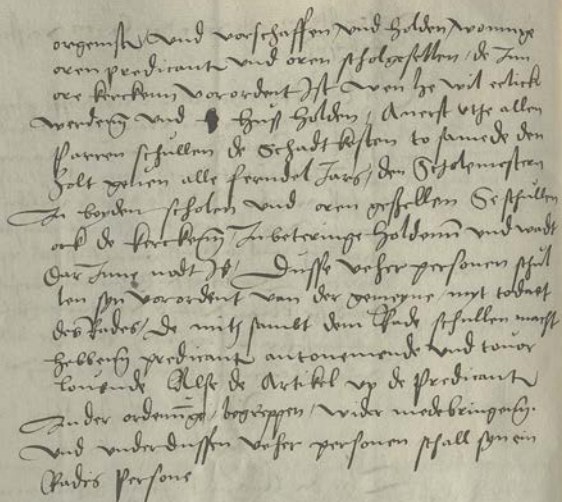 orgemster und vorschaffen und holden woninge
oren predicanten und oren scholgesellen, de Inn
ore kerckenn vorordent Ist wen he wil eelick
werdenn und huss holden, Anerst uthe allen
Parren schullen de Schadtkesten to samede den
holt geuen alle ferndel Jars, den Scholemestern
In beyden scholen und oren gesellen Se schullen
ock de kerckenn In beteringe holdenn und wadt
dar Inne nodt Is, Dusse veher personen schul
len syn vorordent van der gemeyne, myt todaet
des Rades, De mith sambt dem Rade schullen macht
hebbenn predicanten antonemende und touor
louende Alse de Artikel up de Predicanten
In der ordeninge, begreppen, wider medebringenn.
Und under dussen veher personen schall syn ein
Rades Persone